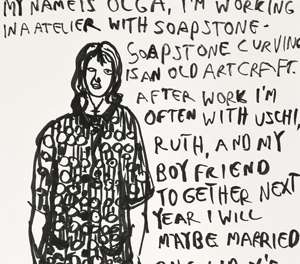 MY NAME IS OLGA, I'M WORKING
IN A ATELIER WITH SOAPSTONE-
SOAPSTONE CURVING
IS AN OLD ARTCRAFT.
AFTER WORK I'M
OFTEN WITH USCHI,
RUTH, AND MY
BOYFRIEND
TOGETHER NEXT
YEAR I WILL
MAYBE MARRIED